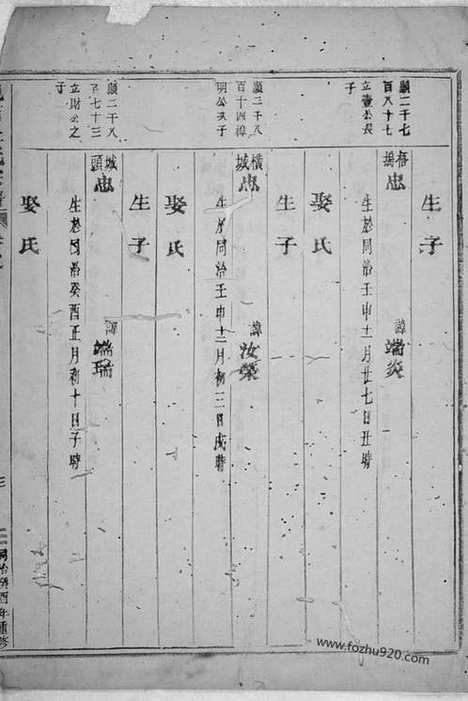 生子
顯二千七
百八十七
立壹公長
子
梧塢忠
諱端炎
生於同治壬申十二月廿七日丑時
娶氏
生子
顯二千八
百十四緯
明公次子
橫城忠
諱汝榮
生於同治壬申十二月初三日戌時
娶氏
生子
顯二千八
百七十三
立財公之
子
城頭忠
諱端瑞
生於同治癸酉正月初十日子時
娶氏
同治癸酉年重修
www.fozhu920.com